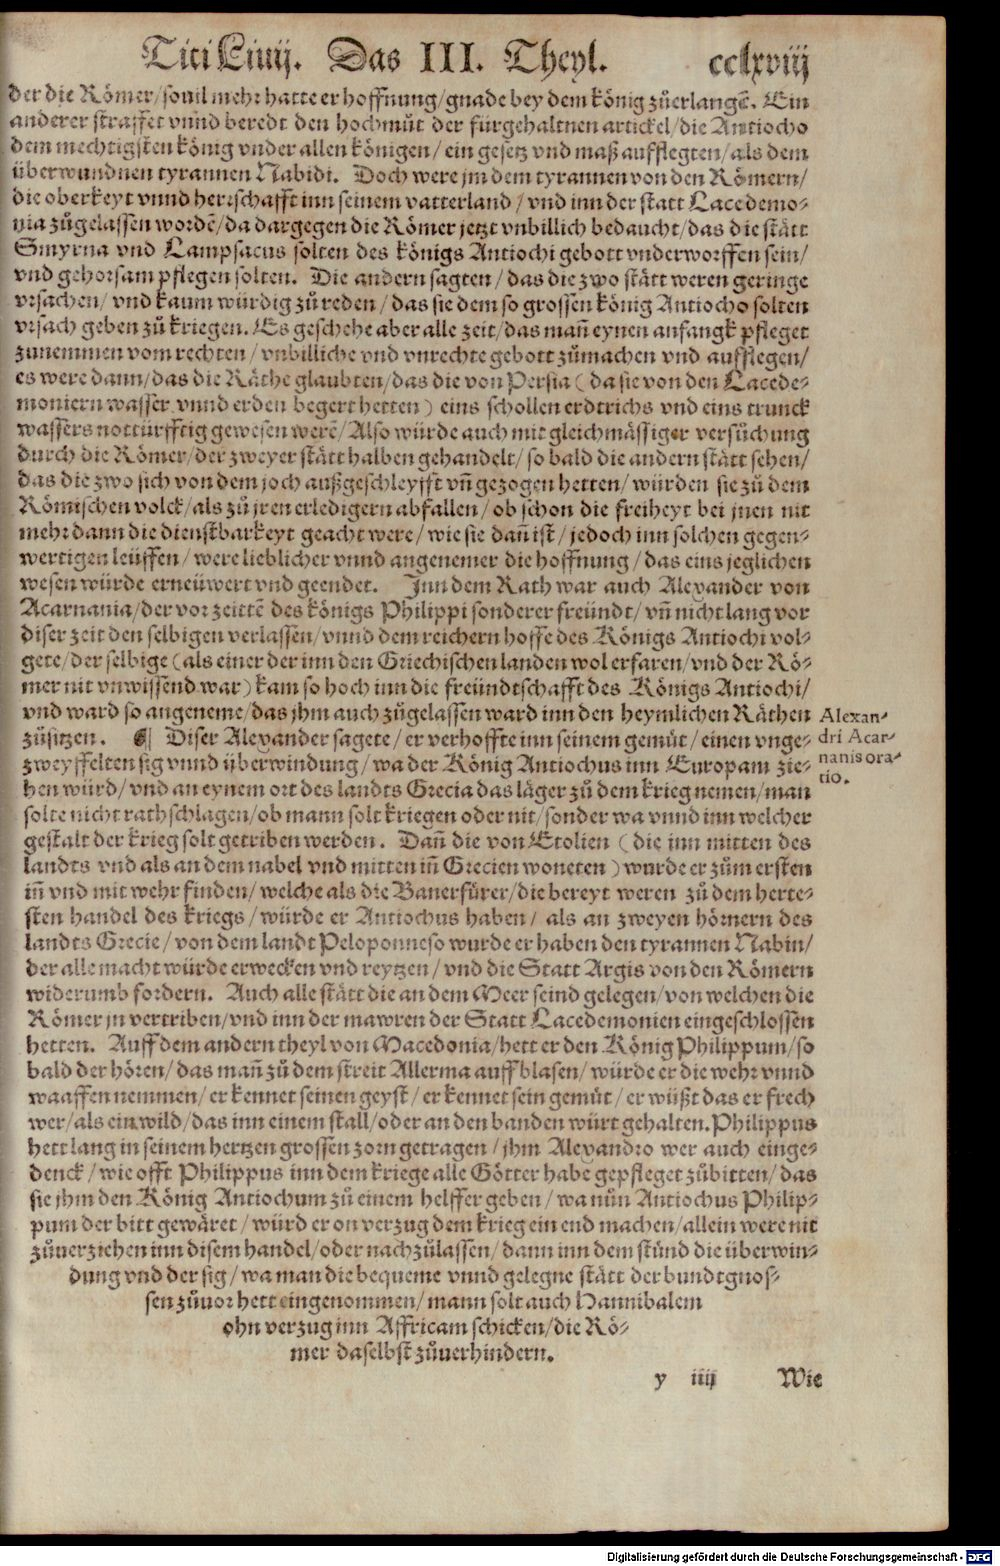 Titi Liuij. Das III. Theyl. cclxviij
der die Römer/ souil mehr hatte er hoffnung/ gnade bey dem könig zůerlangẽ. Ein
anderer straffet vnnd beredt den hochmůt der fürgehaltnen artickel/ die Antiocho
dem mechtigsten könig vnder allen königen/ ein gesetz vnd maß aufflegten/ als dem
überwundnen tyrannen Nabidi. Doch were jm dem tyrannen von den Römern/
die oberkeyt vnnd herrschafft inn seinem vatterland/ vnd inn der statt Lacedemo-
nia zůgelassen wordẽ/ da dargegen die Römer jetzt vnbillich bedaucht/ das die stätt
Smyrna vnd Lampsacus solten des königs Antiochi gebott vnderworffen sein/
vnd gehorsam pflegen solten. Die andern sagten/ das die zwo stätt weren geringe
vrsachen/ vnd kaum würdig zů reden/ das sie dem so grossen könig Antiocho solten
vrsach geben zů kriegen. Es geschehe aber alle zeit/ das mañ eynen anfangk pfleget
zunemmen vom rechten/ vnbilliche vnd vnrechte gebott zůmachen vnd aufflegen/
es were dann/ das die Räthe glaubten/ das die von Persia ( da sie von den Lacede-
moniern wasser vnnd erden begert hetten ) eins schollen erdtrichs vnd eins trunck
wassers notturfftig gewesen werẽ/ Also würde auch mit gleichmässiger versůchung
durch die Römer/ der zweyer stätt halben gehandelt/ so bald die andern stätt sehen/
das die zwo sich von dem joch außgeschleyfft vñ gezogen hetten/ würden sie zů dem
Römischen volck/ als zů jren erledigern abfallen/ ob schon die freiheyt bei jnen nit
mehr dann die dienstbarkeyt geacht were/ wie sie dañ ist/ jedoch inn solchen gegen-
wertigen leüffen/ were lieblicher vnnd angenemer die hoffnung/ das eins jeglichen
wesen würde erneüwert vnd geendet. Inn dem Rath war auch Alexander von
Acarnania/ der vor zeittẽ des königs Philippi sonderer freündt/ vñ nicht lang vor
diser zeit den selbigen verlassen/ vnnd dem reichern hoffe des Königs Antiochi vol-
gete/ der selbige ( als einer der inn den Griechischen landen wol erfaren/ vnd der Rö-
mer nit vnwissend war ) kam so hoch inn die freündtschafft des Königs Antiochi/
vnd ward so angeneme/ das jhm auch zůgelassen ward inn den heymlichen Räthen
zůsitzen. ¶ Diser Alexander sagete/ er verhoffte inn seinem gemüt/ einen vnge-
zweyffelten sig vnnd überwindung/ wa der König Antiochus inn Europam zie-
hen würd/ vnd an eynem ort des landts Grecia das läger zů dem krieg nemen/ man
solte nicht rathschlagen/ ob mann solt kriegen oder nit/ sonder wa vnnd inn welcher
gestalt der krieg solt getriben werden. Dañ die von Etolien ( die inn mitten des
landts vnd als an dem nabel vnd mitten iñ Grecien woneten ) wurde er zům ersten
iñ vnd mit wehr finden/ welche als die Banerfürer/ die bereyt weren zů dem herte-
sten handel des kriegs/ würde er Antiochus haben/ als an zweyen hörnern des
landts Grecie/ von dem landt Peloponneso wurde er haben den tyrannen Nabin/
der alle macht würde erwecken vnd reytzen/ vnd die Statt Argis von den Römern
widerumb fordern. Auch alle stätt die an dem Meer seind gelegen/ von welchen die
Römer jn vertriben/ vnd inn der mawren der Statt Lacedemonien eingeschlossen
hetten. Auff dem andern theyl von Macedonia/ hett er den König Philippum/ so
bald der hören/ das mañ zů dem streit Allerma auffblasen/ würde er die wehr vnnd
waaffen nemmen/ er kennet seinen geyst/ er kennet sein gemüt/ er wüßt das er frech
wer/ als ein wild/ das inn einem stall/ oder an den banden würt gehalten. Philippus
hett lang in seinem hertzen grossen zorn getragen/ jhm Alexandro wer auch einge-
denck/ wie offt Philippus inn dem kriege alle Götter habe gepfleget zůbitten/ das
sie jhm den König Antiochum zů einem helffer geben/ wa nůn Antiochus Philip-
pum der bitt gewäret/ würd er on verzug dem krieg ein end machen/ allein were nit
zůuerziehen inn disem handel/ oder nachzůlassen/ dann inn dem stünd die überwin-
dung vnd der sig/ wa man die bequeme vnnd gelegne stätt der bundtgnos-
sen zůuor hett eingenommen/ mann solt auch Hannibalem
ohn verzug inn Affricam schicken/ die Rö-
mer daselbst zůuerhindern.
Alexan-
dri Acar-
nanis ora-
tio.
y iiij Wie
Digitalisierung gefördert durch die Deutsche Forschungsgemeinschaft - DFG